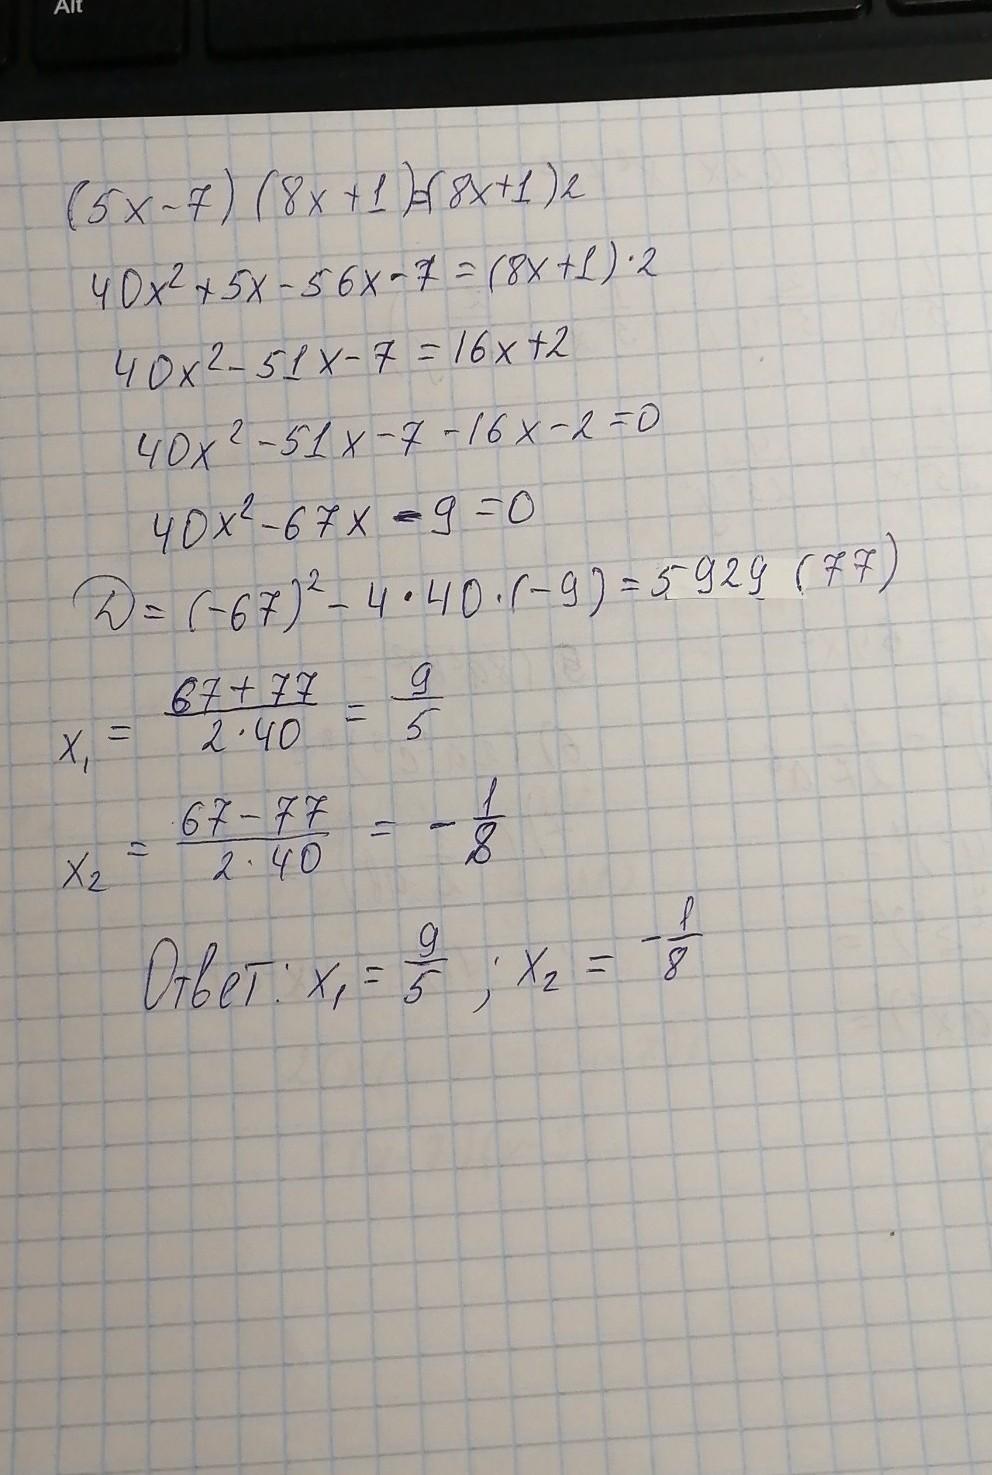 Alt
(5x-7)(8x+1)=(8x+1)2
40x²+5x-56x-7=(8x+1)·2
40x²-51x-7=16x+2
40x²-51x-7-16x-2=0
40x²-67x-9=0
D=(-67)²-4·40·(-9)=5929 (77)
x₁ = (67+77)/(2·40) = 9/5
x₂ = (67-77)/(2·40) = -1/8
Ответ: x₁ = 9/5 ; x₂ = -1/8